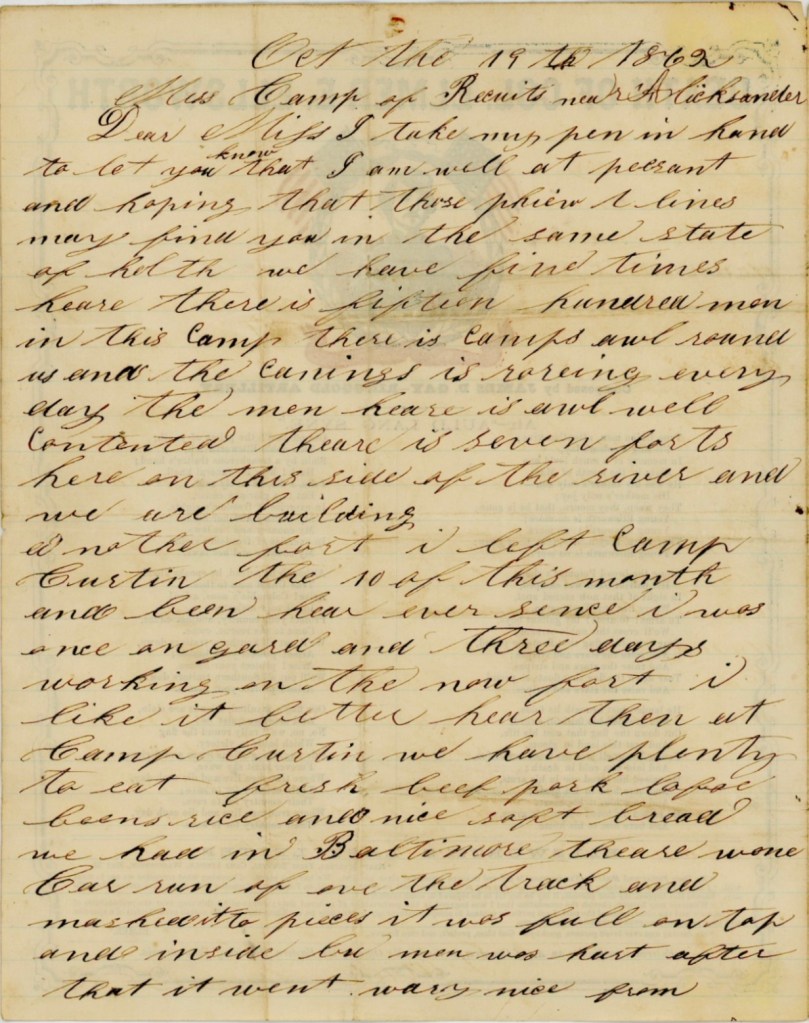 Oct the 19 th 1862
Miss Camp of Recuits near Alicksander
Dear Miss I take my pen in hand
to let you know that I am well at pecsant
and hoping that those phiew t lines
may find you in the same state
of helth we have fine times
heare there is fiftien hundred men
in this Camp there is Camps awl round
us and the Canings is roreing every
day the men heare is awl well
Contented theare is seven forts
here on this side of the river and
we are building
a nother fort i left Camp
Curtin the 10 of this month
and been hear ever sence i was
once on gard and three days
working on the now fort i
like it better hear then at
Camp Curtin we have plenty
to eat frish beef pork
beens rice and nice soft bread
we had in Baltimore theare wone
Car run of ove the track and
mashed it to pieces it was full on top
and inside men was hurt after
that it went wary nice from